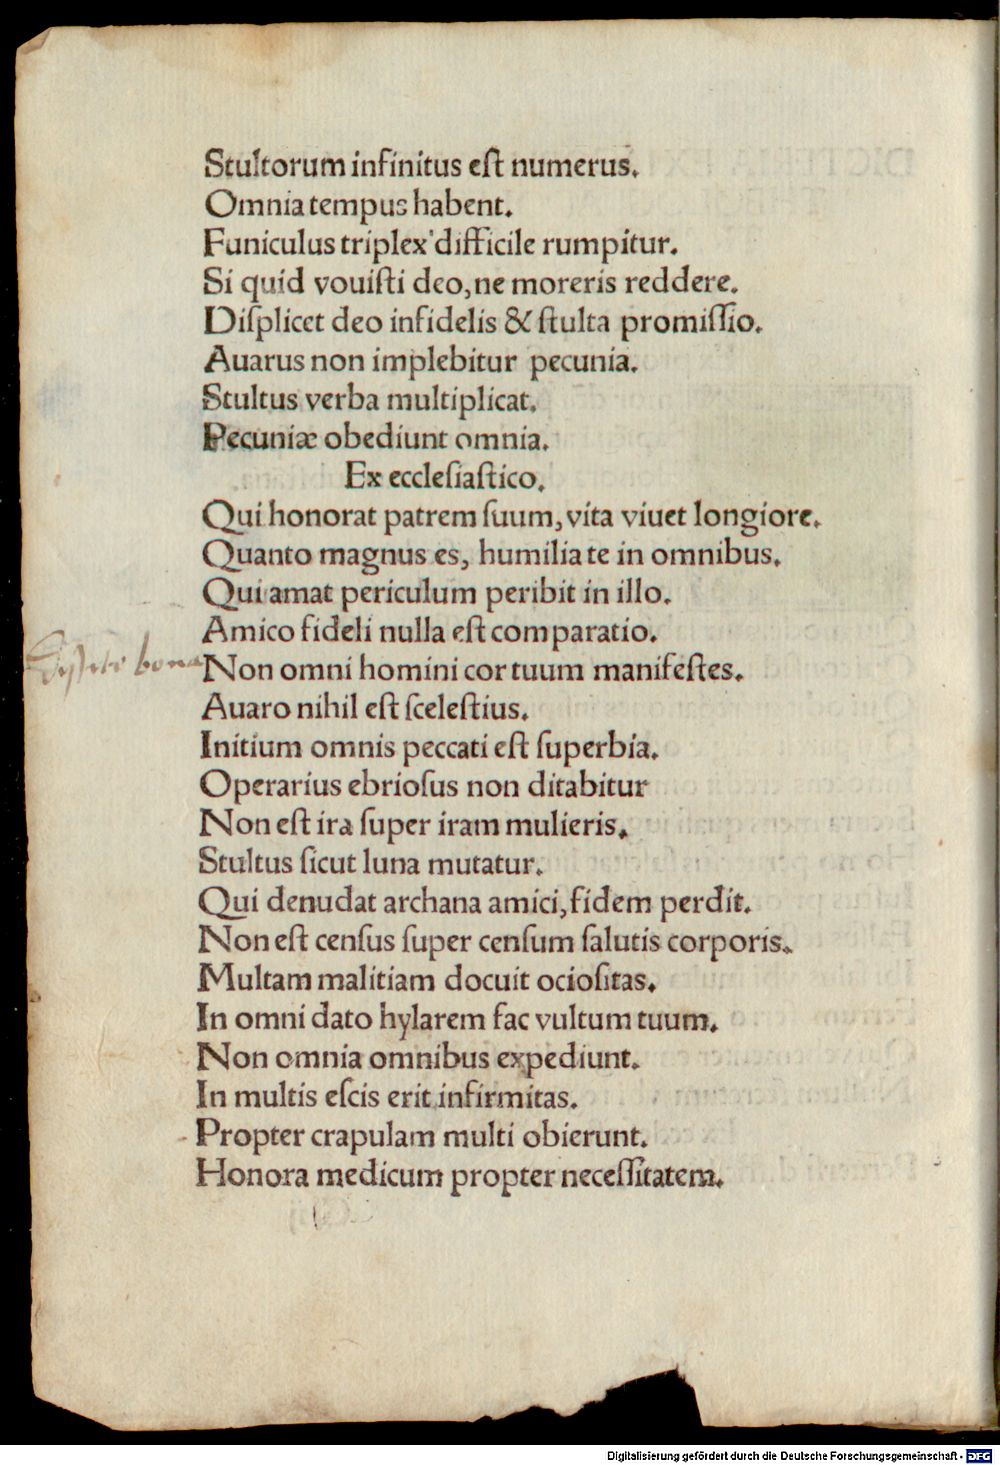 Stultorum infinitus eſt numerus.
Omnia tempus habent.
Funiculus triplex difficile rumpitur.
Si quid vouiſti deo, ne moreris reddere.
Diſplicet deo infidelis & ſtulta promiſſio.
Auarus non implebitur pecunia.
Stultus verba multiplicat.
Pecuniæ obediunt omnia.
Ex eccleſiaſtico.
Qui honorat patrem ſuum, vita viuet longiore.
Quanto magnus es, humilia te in omnibus.
Qui amat periculum peribit in illo.
Amico fideli nulla eſt comparatio.
bona
Non omni homini cor tuum manifeſtes.
Auaro nihil eſt ſceleſtius.
Initium omnis peccati eſt ſuperbia.
Operarius ebrioſus non ditabitur
Non eſt ira ſuper iram mulieris.
Stultus ſicut luna mutatur.
Qui denudat archana amici, fidem perdit.
Non eſt cenſus ſuper cenſum ſalutis corporis.
Multam malitiam docuit ocioſitas.
In omni dato hylarem fac vultum tuum.
Non omnia omnibus expediunt.
In multis eſcis erit infirmitas.
Propter crapulam multi obierunt.
Honora medicum propter neceſſitatem.
Digitalisierung gefördert durch die Deutsche Forschungsgemeinschaft - DFG